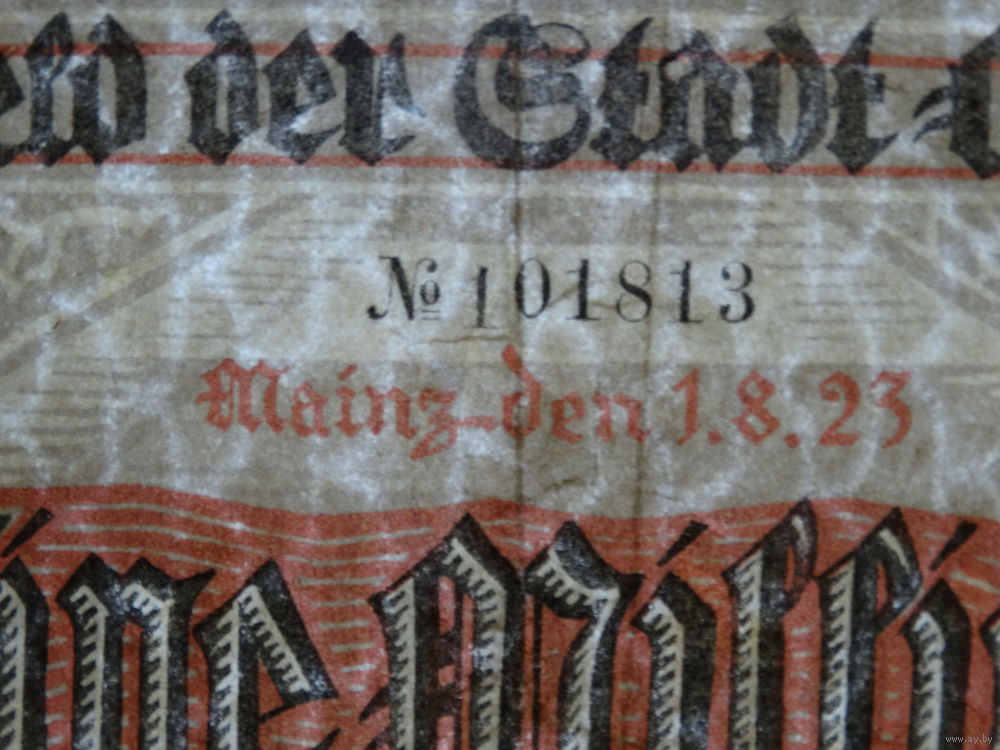 eld der Stadt
№ 101813
Mainz-den 1.8.23
ine Milli
www.ay.by